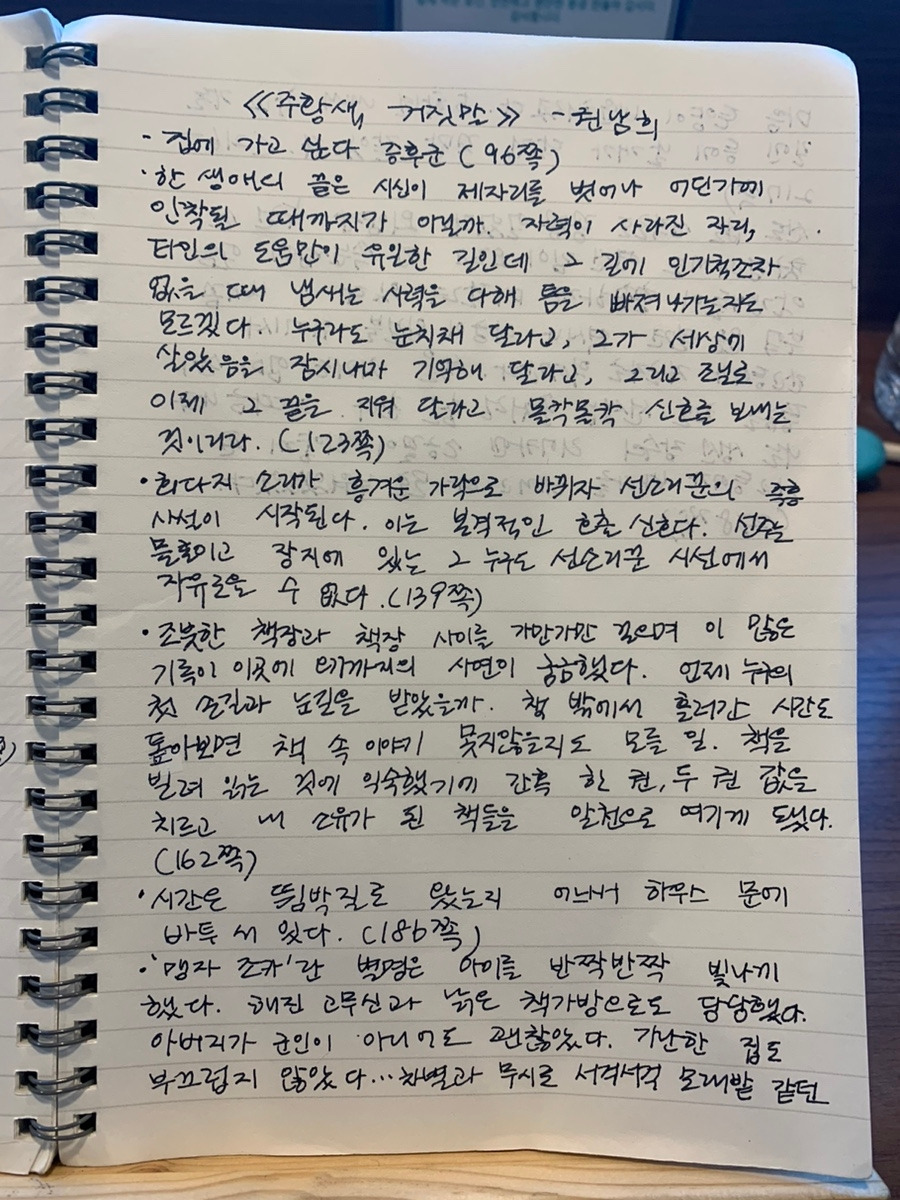 <<주황색 거짓말>> - 권남희
· 집에 가고 싶다 증후군 (96쪽)
· 한 생애의 끝은 시신이 제자리를 벗어나 어딘가에
안착될 때까지가 아닐까. 자력이 사라진 자리,
타인의 도움만이 유일한 길인데 그 길에 인기척조차
없을 때 냄새는 사력을 다해 틈을 빠져나가는지도
모르겠다. 누구라도 눈치채 달라고, 그가 세상에
살았음을 잠시나마 기억해 달라고, 그리고 조닐로
이제 그 끝을 지워 달라고 몰칵몰칵 신호를 보내는
것이리라. (123쪽)
· 회다지 소리가 흥겨운 가락으로 바뀌자 선소리꾼의 즉흥
사설이 시작된다. 이는 본격적인 호출 신호다. 선주는
물론이고 장지에 있는 그 누구도 선소리꾼 시선에서
자유로울 수 없다. (139쪽)
· 조붓한 책장과 책장 사이를 가만가만 걸으며 이 많은
기록이 이곳에 오기까지의 사연이 궁금했다. 언제 누구의
첫 손길과 눈길을 받았을까. 책 밖에서 흘러간 시간도
톺아보면 책 속 이야기 못지않을지도 모를 일. 책을
빌려 읽는 것에 익숙했기에 간혹 한 권, 두 권 값을
치르고 내 소유가 된 책들을 알천으로 여기게 됐다.
(162쪽)
· 시간은 뜀박질로 왔는지 어느새 하우스 문에
바투 서 있다. (186쪽)
· '맹자 조카'란 별명은 아이를 반짝반짝 빛나게
했다. 해진 고무신과 낡은 책가방으로도 당당했다.
아버지가 군인이 아니어도 괜찮았다. 가난한 집도
부끄럽지 않았다... 차별과 무시로 서걱서걱 모래밭 같던